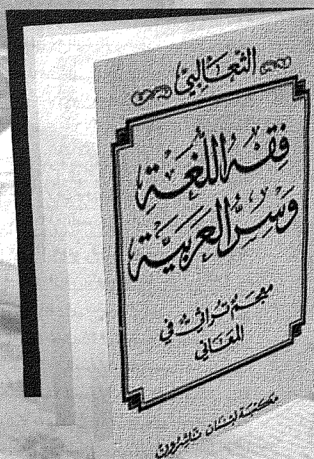 الثعالبي
فقه اللغة
وسر العربية
معجم تراثي في
المعاني
مكتبة لبنان ناشرون